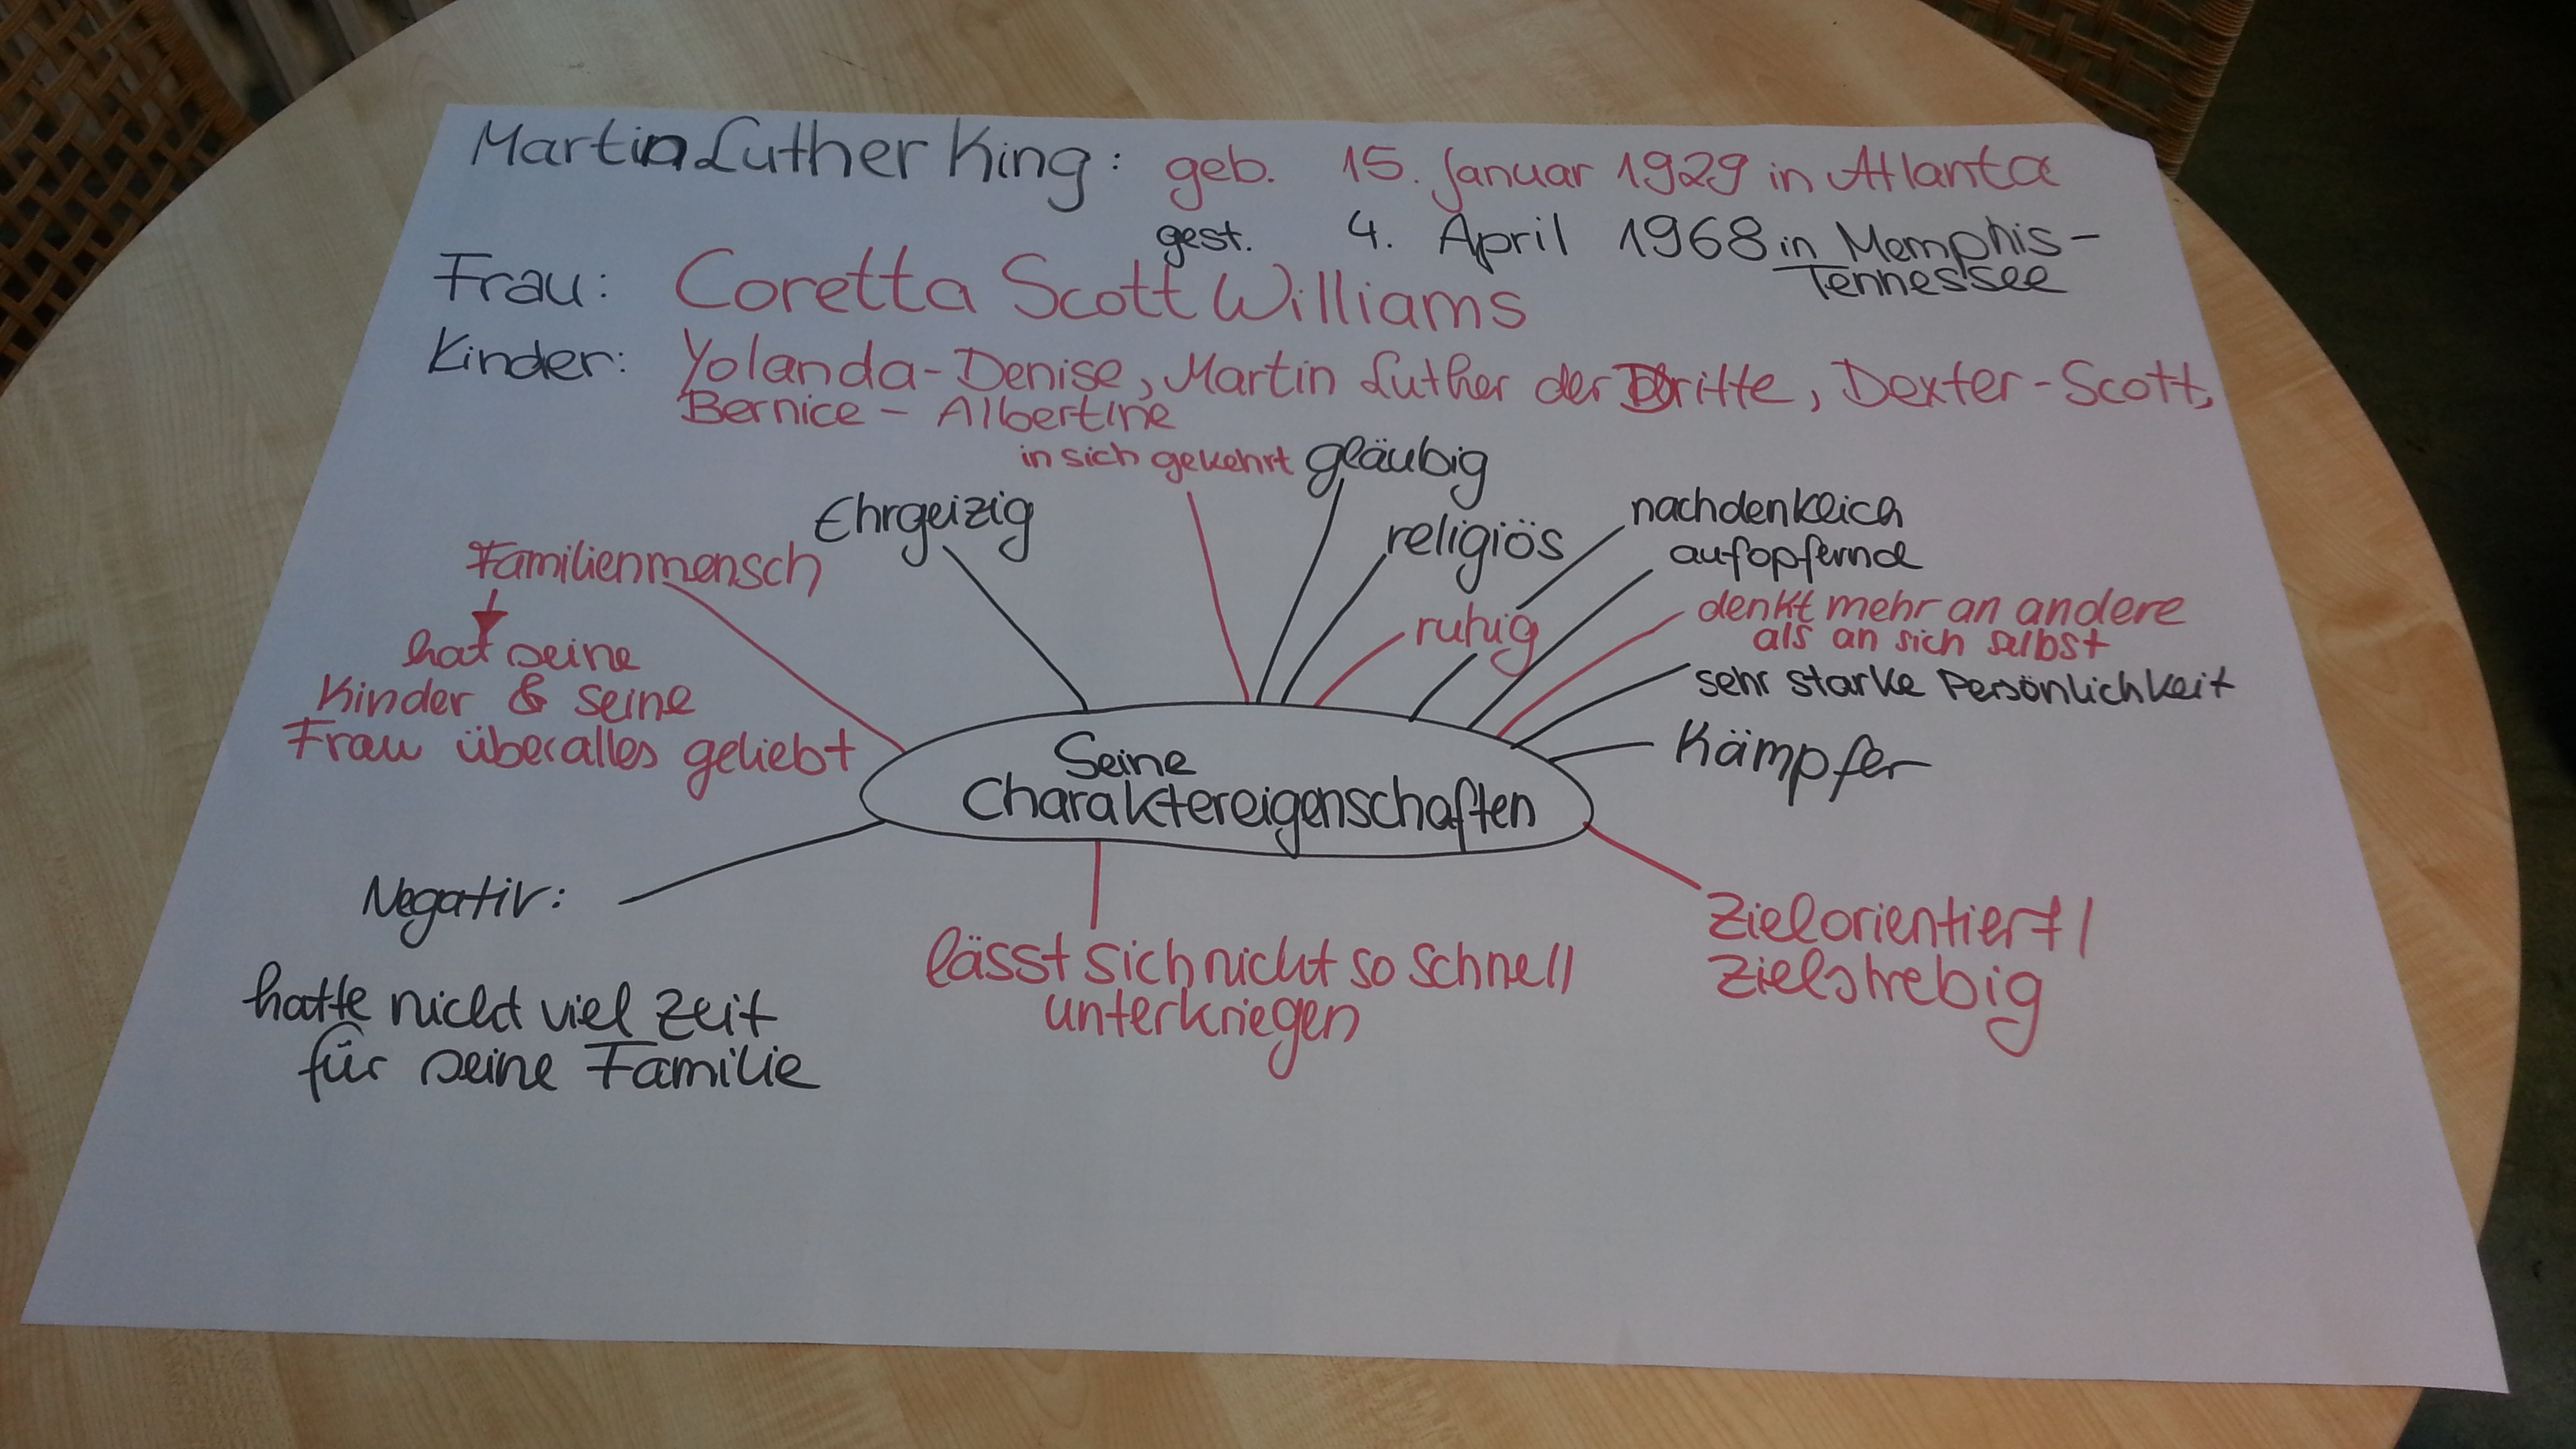 Martin Luther King: geb. 15. Januar 1929 in Atlanta
gest. 4. April 1968 in Memphis-
Tennessee
Frau: Coretta Scott Williams
Kinder: Yolanda-Denise, Martin Luther der Dritte, Dexter-Scott,
Bernice - Albertine
in sich gekehrt
gläubig
Ehrgeizig
religiös
nachdenklich
aufopfernd
Familienmensch
hat seine
Kinder & seine
Frau über alles geliebt
ruhig
denkt mehr an andere
als an sich selbst
sehr starke Persönlichkeit
Kämpfer
Seine
Charaktereigenschaften
Negativ:
hatte nicht viel Zeit
für seine Familie
lässt sich nicht so schnell
unterkriegen
Zielorientiert/
Zielstrebig